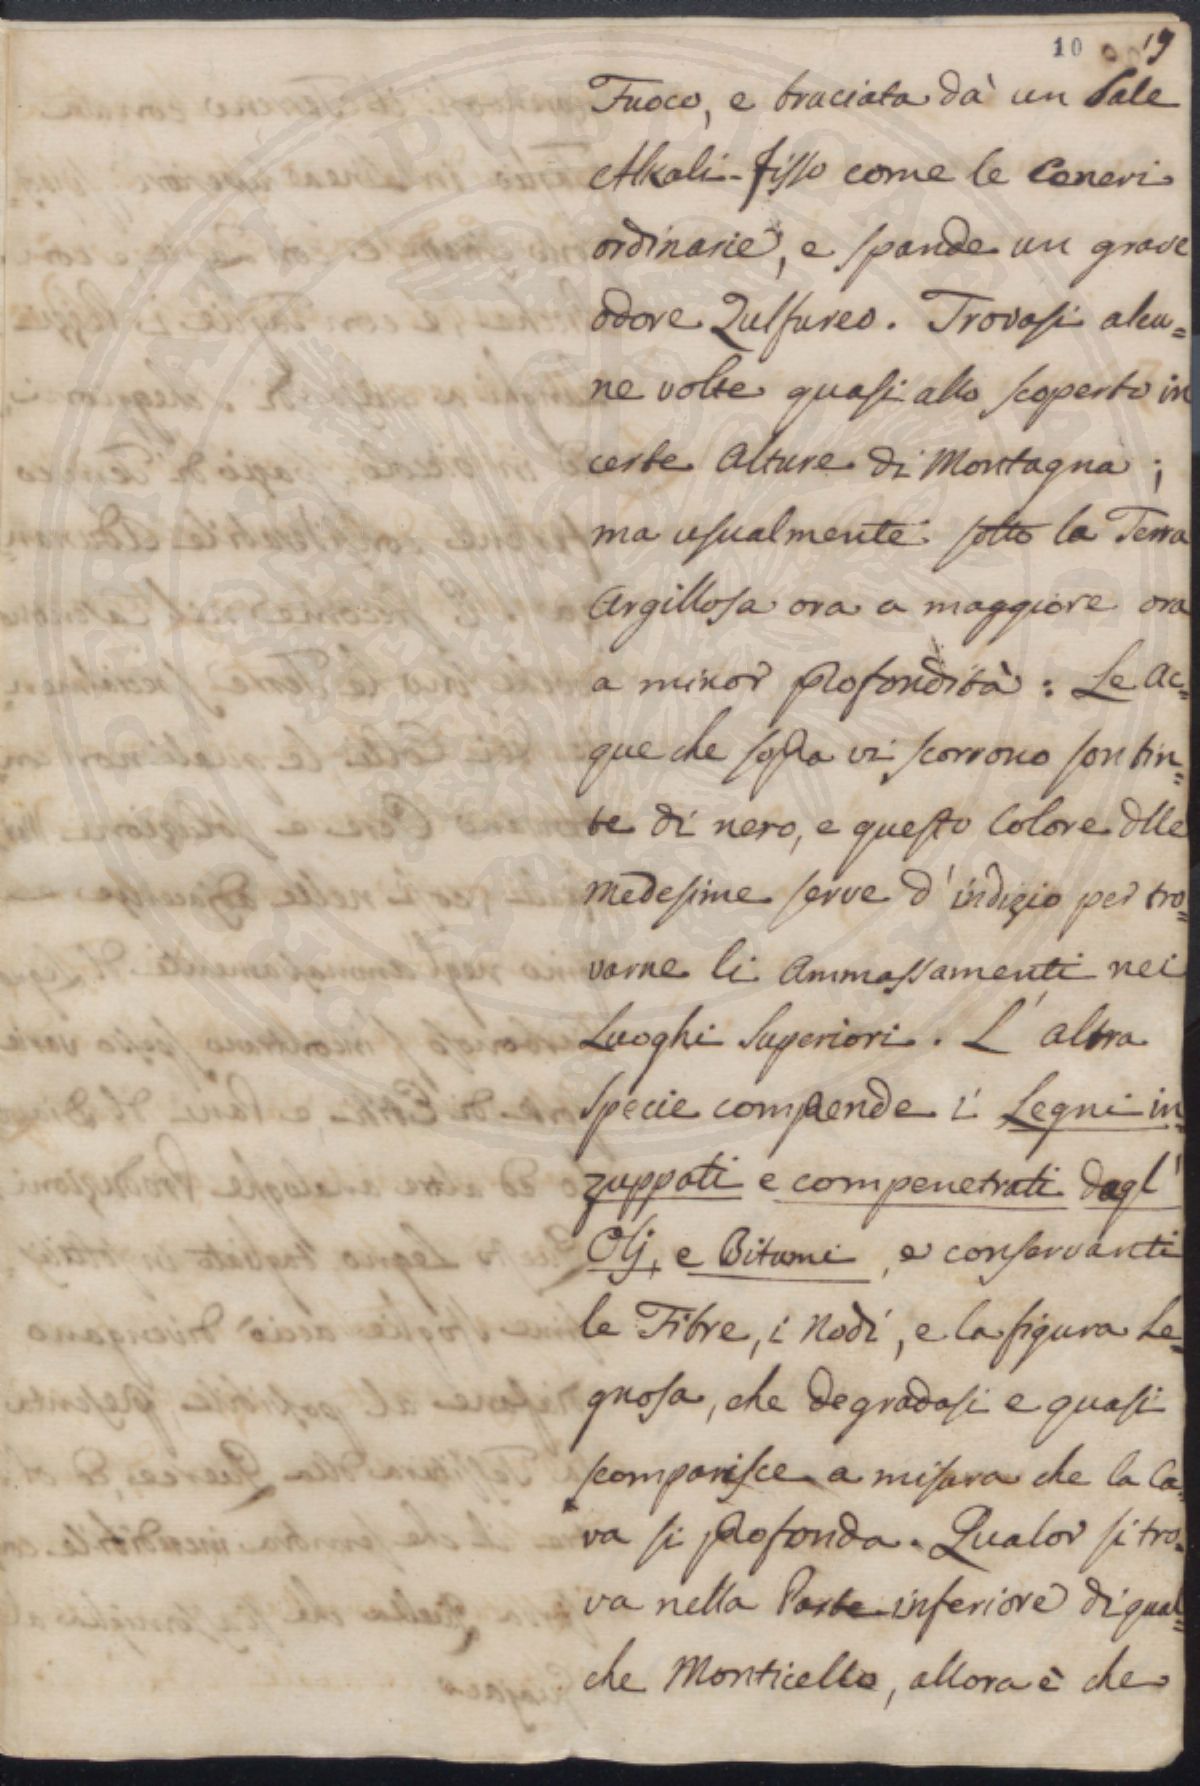 10 19
Fuoco, e braciata dà un Sale
Alkali-fisso come le Ceneri
ordinarie, e spande un grave
odore Zulfureo. Trovasi alcu=
ne volte quasi allo scoperto in
certe Alture di Montagna ;
ma usualmente sotto la Terra
Argillosa ora a maggiore ora
a minor profondità : Le Ac=
que che sopra vi scorrono son tin=
te di nero, e questo Colore dlle
medesime serve d'indizio per tro=
varne li Ammassamenti nei
Luoghi Superiori. L'altra
Specie comprende i Legni in=
zuppati e compenetrati dagl'
Olj, e Bitumi, e conservanti
le Fibre, i Nodi, e la figura Le=
gnosa, che degradasi e quasi
scomparisce a misura che la Ca=
va si profonda. Qualor si tro=
va nella Parte inferiore di qual=
che Monticello, allora è che